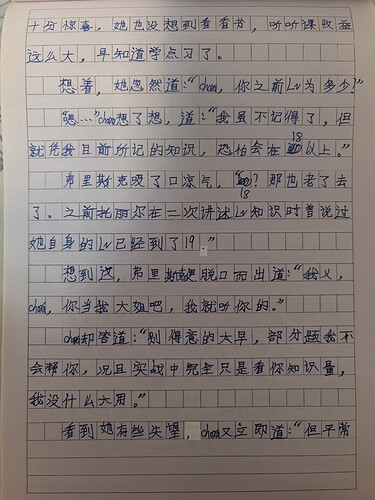 十分惊喜，她也没想到看看书，听听课收益
这么大，早知道学点习了。
想着，她忽然道：“chara，你之前LV为多少？”
“嗯…”chara想了想，道：“我虽不记得了，但
就凭我目前所记的知识，恐怕会在18以上。”
弗里斯克咬了口凉气，“18？那也老了去
了。之前托丽尔在二次讲述LV知识时曾说过
她自身的LV已经到了19。”
想到这，弗里斯克便脱口而出道：“我义，
chara，你当我大姐吧，我就听你的。”
chara却答道：“别得意的太早，部分题我不
会帮你，况且实战中完全只是看你知识量，
我没什么大用。”
看到她有些失望，chara又立即道：“但平常